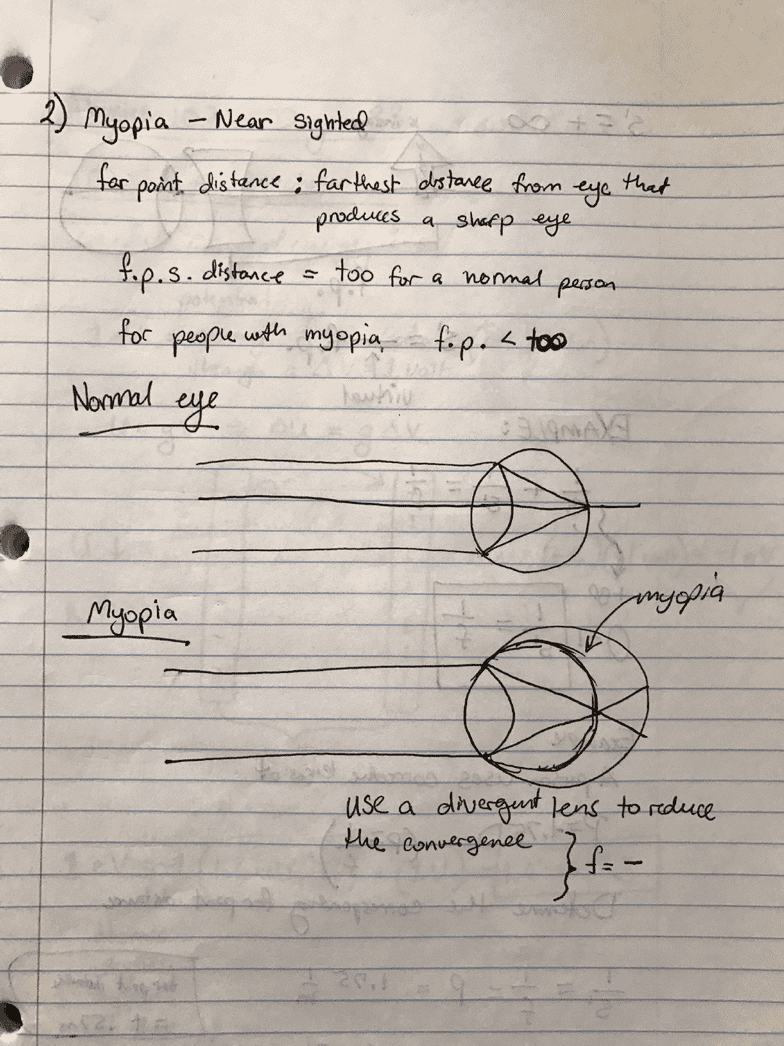 2) Myopia - Near sighted
far point distance : farthest distance from eye that
produces a sharp eye
f.p.s. distance = +oo for a normal person
for people with myopia, = f.p. < +oo
Normal eye
Myopia
myopia
use a divergent lens to reduce
the convergence } f = -